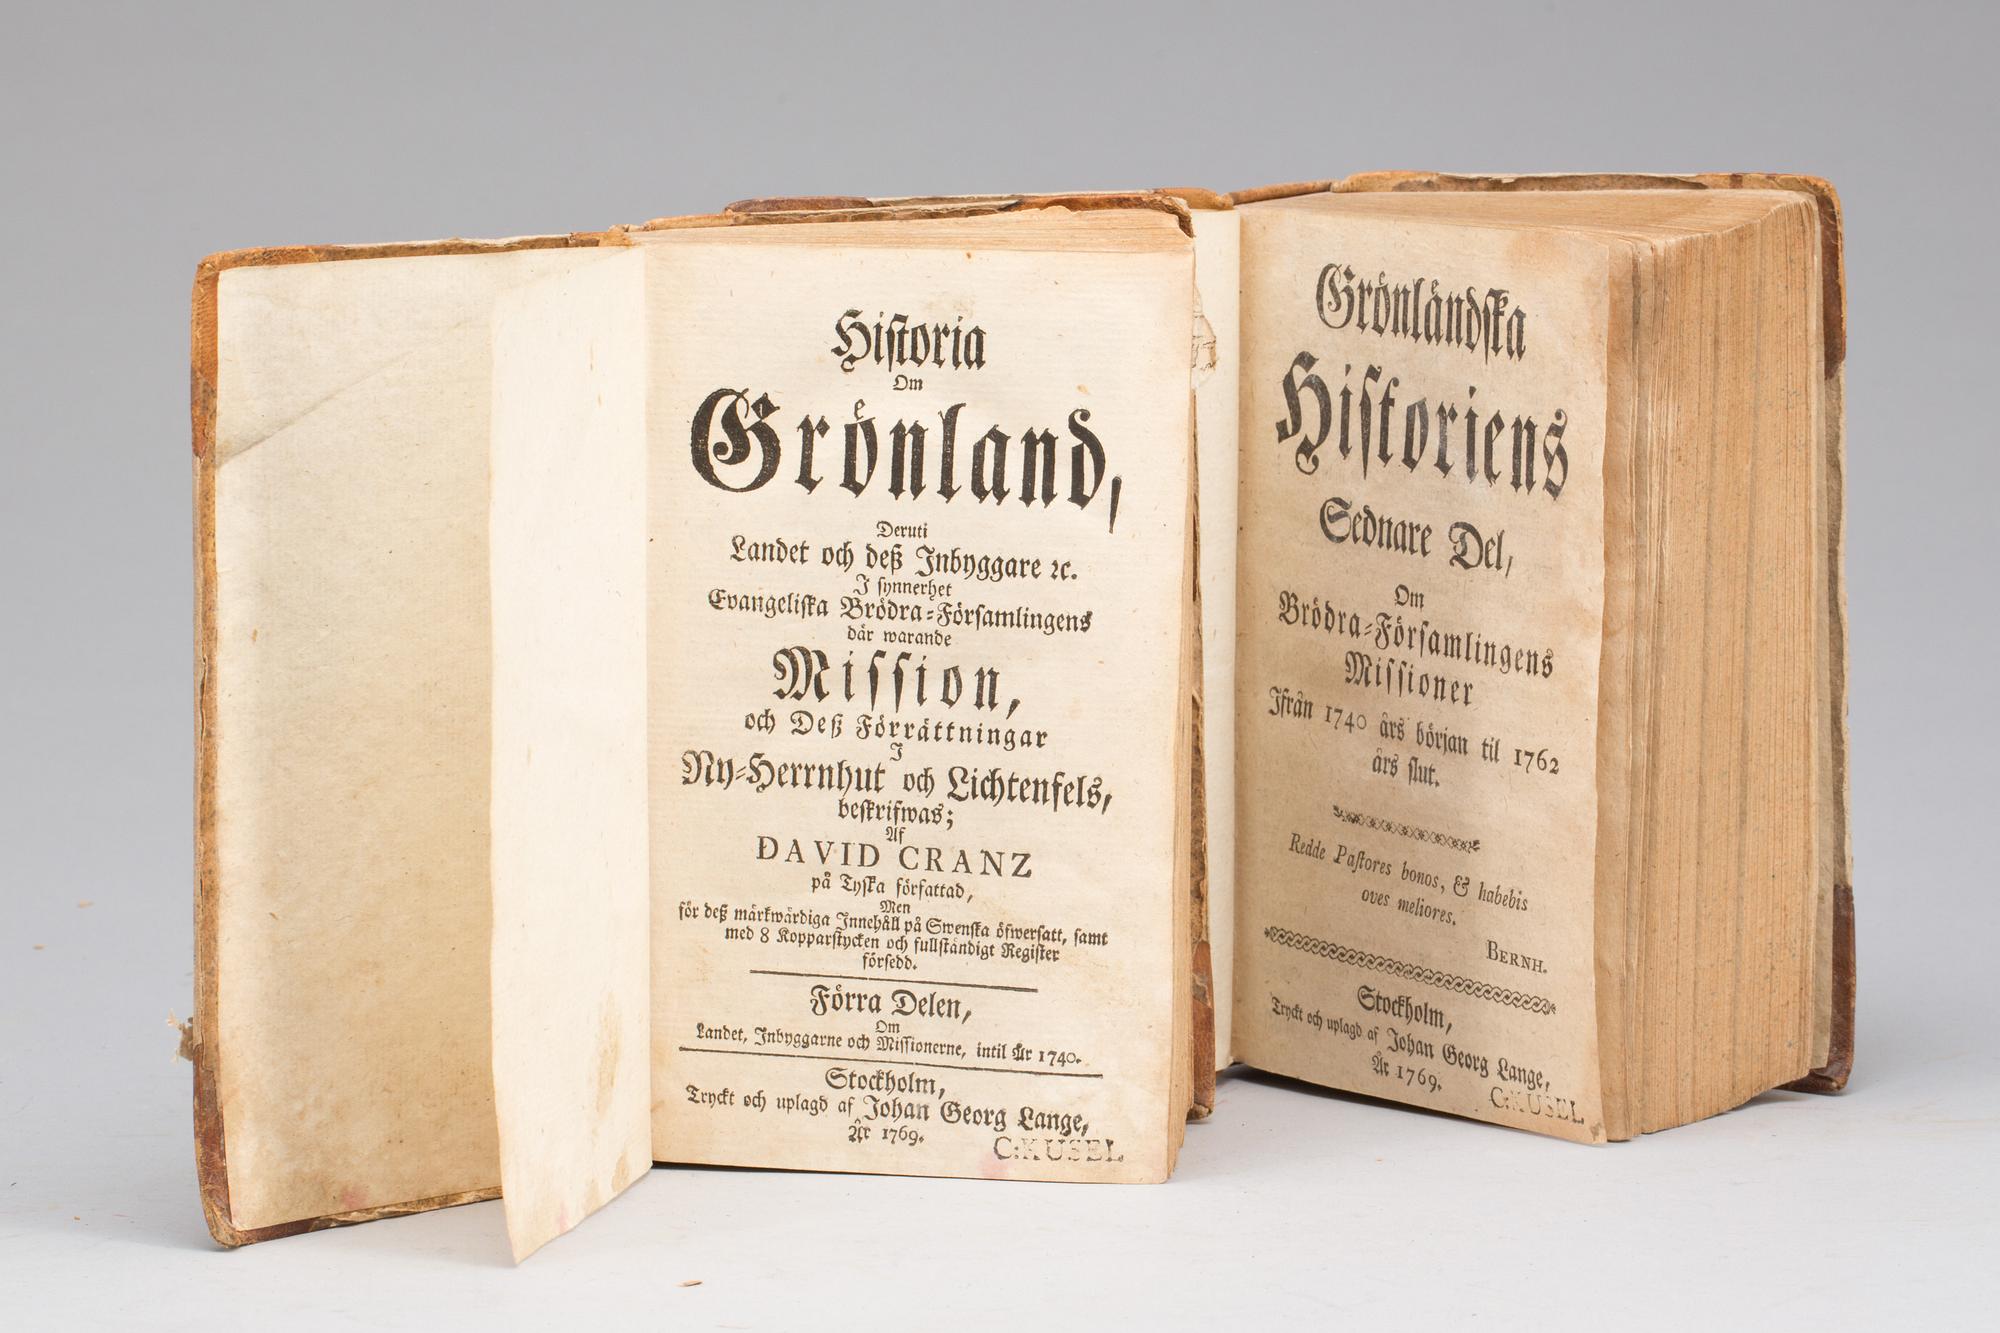 Historia
Om
Grönland,
Deruti
Landet och deß Inbyggare ꝛc.
I synnerhet
Evangeliska Brödra-Församlingens
där warande
Mission,
och Deß Förrättningar
I
Ny-Herrnhut och Lichtenfels,
beskrifwas;
Af
DAVID CRANZ
på Tyska författad,
Men
för deß märkwärdiga Innehåll på Swenska öfwersatt, samt
med 8 Kopparstycken och fullständigt Register
försedd.
Förra Delen,
Om
Landet, Inbyggarne och Missionerne, intil År 1740.
Stockholm,
Tryckt och uplagd af Johan Georg Lange,
År 1769.
C:KUSEL.
Grönländska
Historiens
Sednare Del,
Om
Brödra-Församlingens
Missioner
Ifrån 1740 års början til 1762
års slut.
Redde Pastores bonos, & habebis
oves meliores.
BERNH.
Stockholm,
Tryckt och uplagd af Johan Georg Lange,
År 1769.
C:KUSEL.